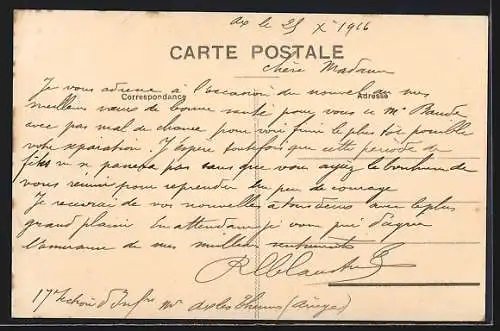 Aix le 25 Xe 1916
CARTE POSTALE
Chère Madame
Correspondance
Adresse
Je vous adresse à l'occasion du nouvel an mes
meilleurs vœux de bonne santé pour vous et Mr
avec pas mal de chance pour voir finir le plus tôt possible
votre séparation. J'espère toutefois que cette période de
fêtes ne se passera pas sans que vous ayiez le bonheur de
vous réunir pour reprendre un peu de courage
Je recevrai de vos nouvelles à tous deux avec le plus
grand plaisir En attendant je vous prie d'agréer
l'assurance de mes meilleurs sentiments
17e d'Infie